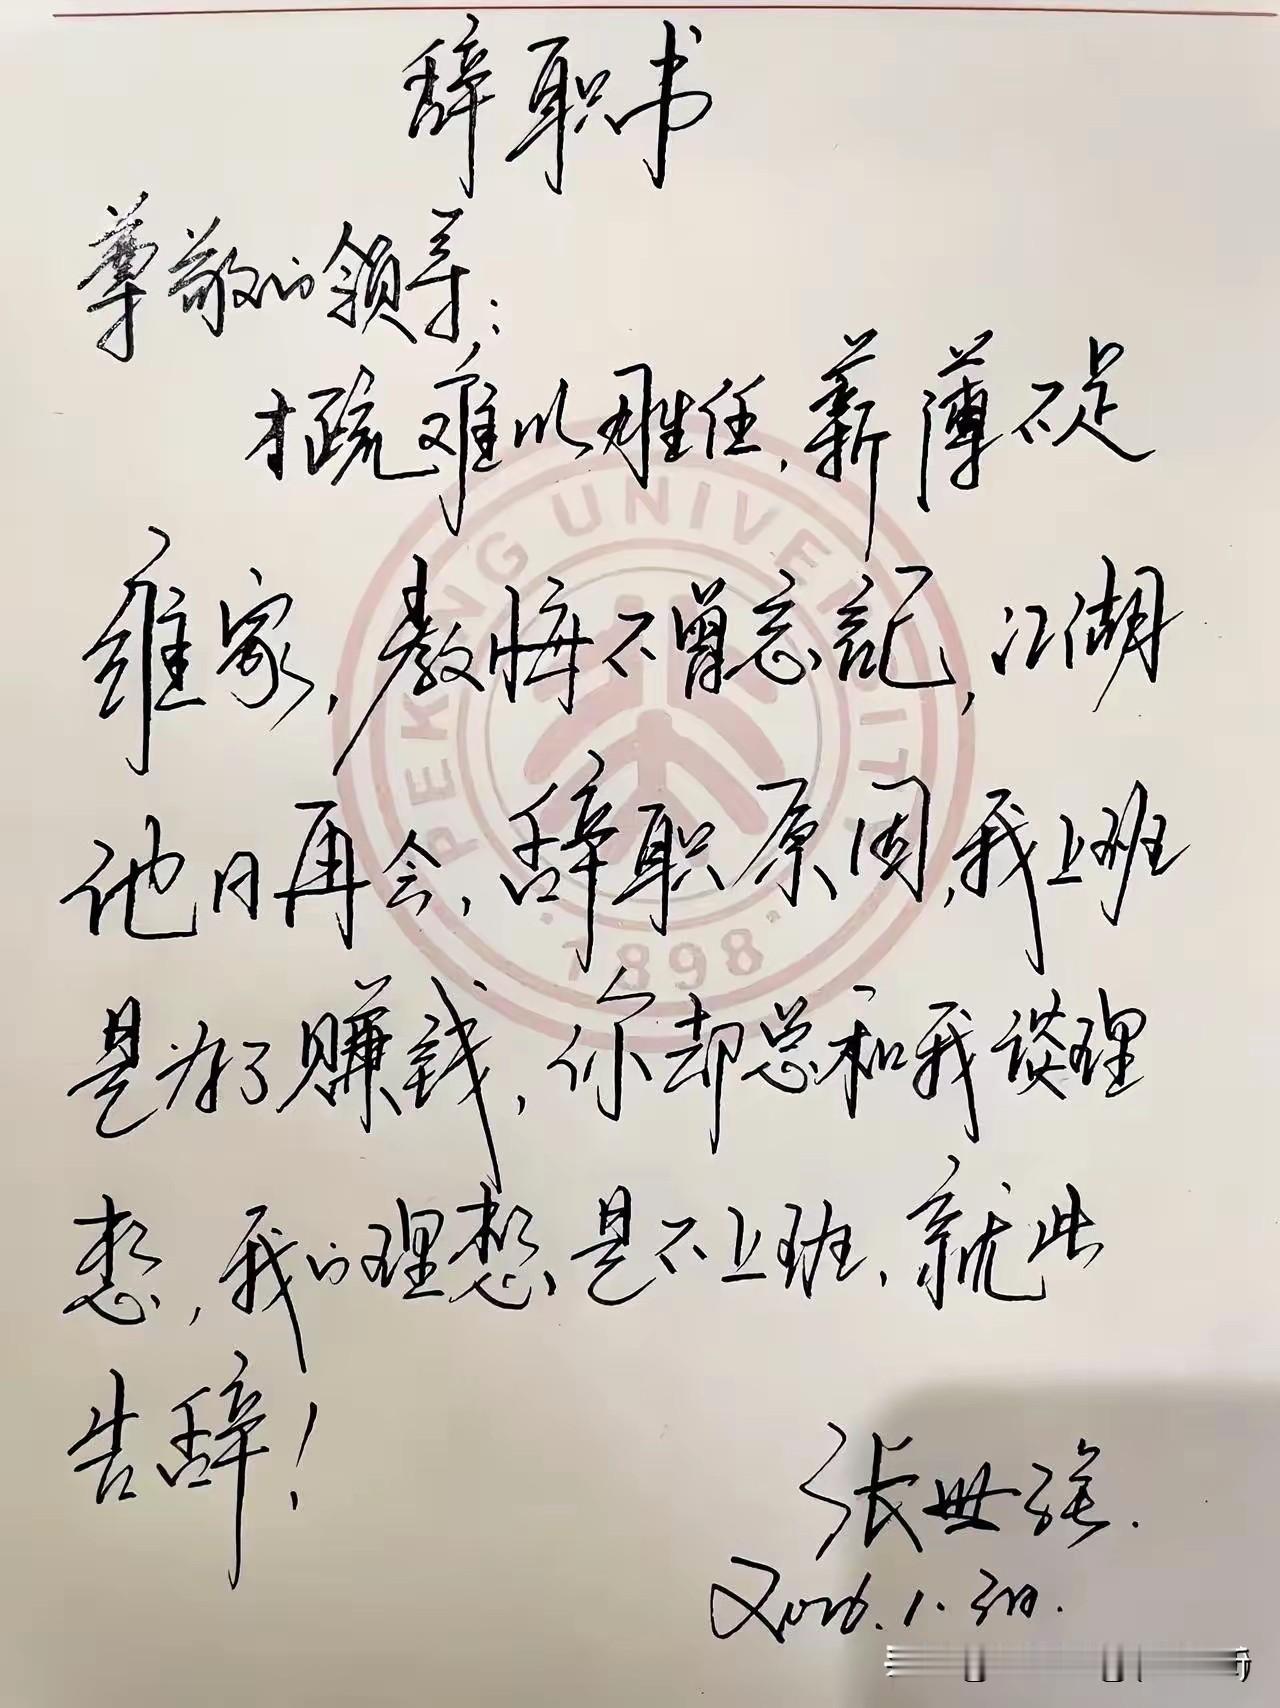 辞职书
尊敬的领导:
才疏难以胜任,薪薄不足
维家,教悔不曾忘记,江湖
他日再会,辞职原因,我上班
是为了赚钱,你却总和我谈理
想,我的理想是不上班,就此
告辞!
张世强.
2026.1.
PEKING UNIVERSITY
1898